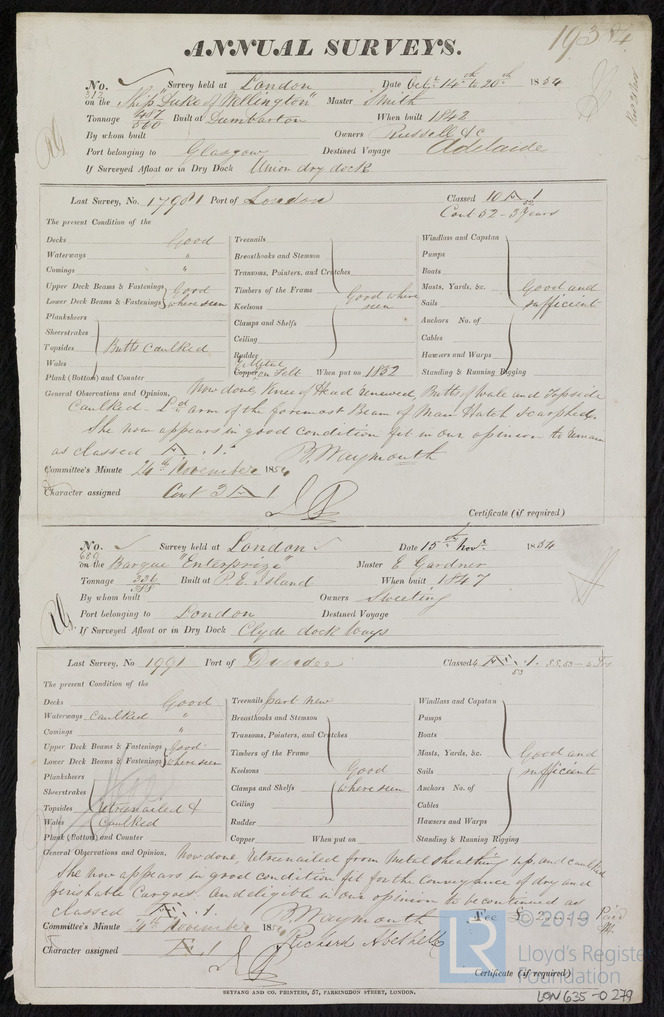 19384
ANNUAL SURVEYS.
No. 312 Survey held at London Date Octr. 14th to 20th 1854
on the Ship "Duke of Wellington" Master Smith
Tonnage 487 560 Built at Dumbarton When built 1842
By whom built Owners Russell & Co
Port belonging to Glasgow Destined Voyage Adelaide
If Surveyed Afloat or in Dry Dock Union dry dock
Last Survey, No. Port of London Classed 10 A 1
Cont 52 - 3 Years
The present Condition of the
Decks Good
Waterways "
Comings "
Upper Deck Beams & Fastenings Good
Lower Deck Beams & Fastenings where seen
Planksheers
Sheerstrakes
Topsides Butts Caulked
Wales
Plank (Bottom) and Counter
Treenails
Breasthooks and Stemson
Transoms, Pointers, and Crutches
Timbers of the Frame Good where
Keelsons seen
Clamps and Shelfs "
Ceiling
Rudder
Y. Metal
Copper on Felt When put on 1852
Windlass and Capstan
Pumps
Boats
Masts, Yards, &c. Good and
Sails sufficient
Anchors No. of
Cables
Hawsers and Warps
Standing & Running Rigging
General Observations and Opinion, Now done, Knee of Head renewed, Butts of Wale and Topside
Caulked - Ld. arm of the foremost Beam of Main Hatch scarphed.
She now appears in good condition fit in our opinion to remain
as classed A. 1. B. Waymouth
Committee's Minute 24th November 1854
Character assigned Cont 3 A 1
Certificate (if required)
No. 689 Survey held at London Date 15th Novr. 1854
on the Barque "Enterprize" Master E Gardner
Tonnage 336 388 Built at P. E. Island When built 1847
By whom built Owners Sweeting
Port belonging to London Destined Voyage
If Surveyed Afloat or in Dry Dock Clyde dock Ways
Last Survey, No 1991 Port of Dundee Classed 4 Æ 1. 53
The present Condition of the
Decks Good
Waterways Caulked "
Comings "
Upper Deck Beams & Fastenings Good
Lower Deck Beams & Fastenings where seen
Planksheers
Sheerstrakes
Topsides retrenailed &
Wales Caulked
Plank (Bottom) and Counter
Treenails part new
Breasthooks and Stemson
Transoms, Pointers, and Crutches
Timbers of the Frame
Keelsons Good
Clamps and Shelfs where seen
Ceiling
Rudder
Copper When put on
Windlass and Capstan
Pumps
Boats
Masts, Yards, &c. Good and
Sails sufficient
Anchors No. of
Cables
Hawsers and Warps
Standing & Running Rigging
General Observations and Opinion, Now done, retrenailed from Metal sheathing up, and caulked
She now appears in good condition fit for the conveyance of dry and
perishable Cargoes. And eligible in our opinion to be continued as
classed Æ. 1. B. Waymouth Fee £ 2 Paid
Committee's Minute 24th November 1854 Richard Abethell
Character assigned Æ 1
Certificate (if required)
© 2019
LR
Lloyd's Register
Foundation
SEYFANG AND CO. PRINTERS, 57, FARRINGDON STREET, LONDON.
LON 635-0279